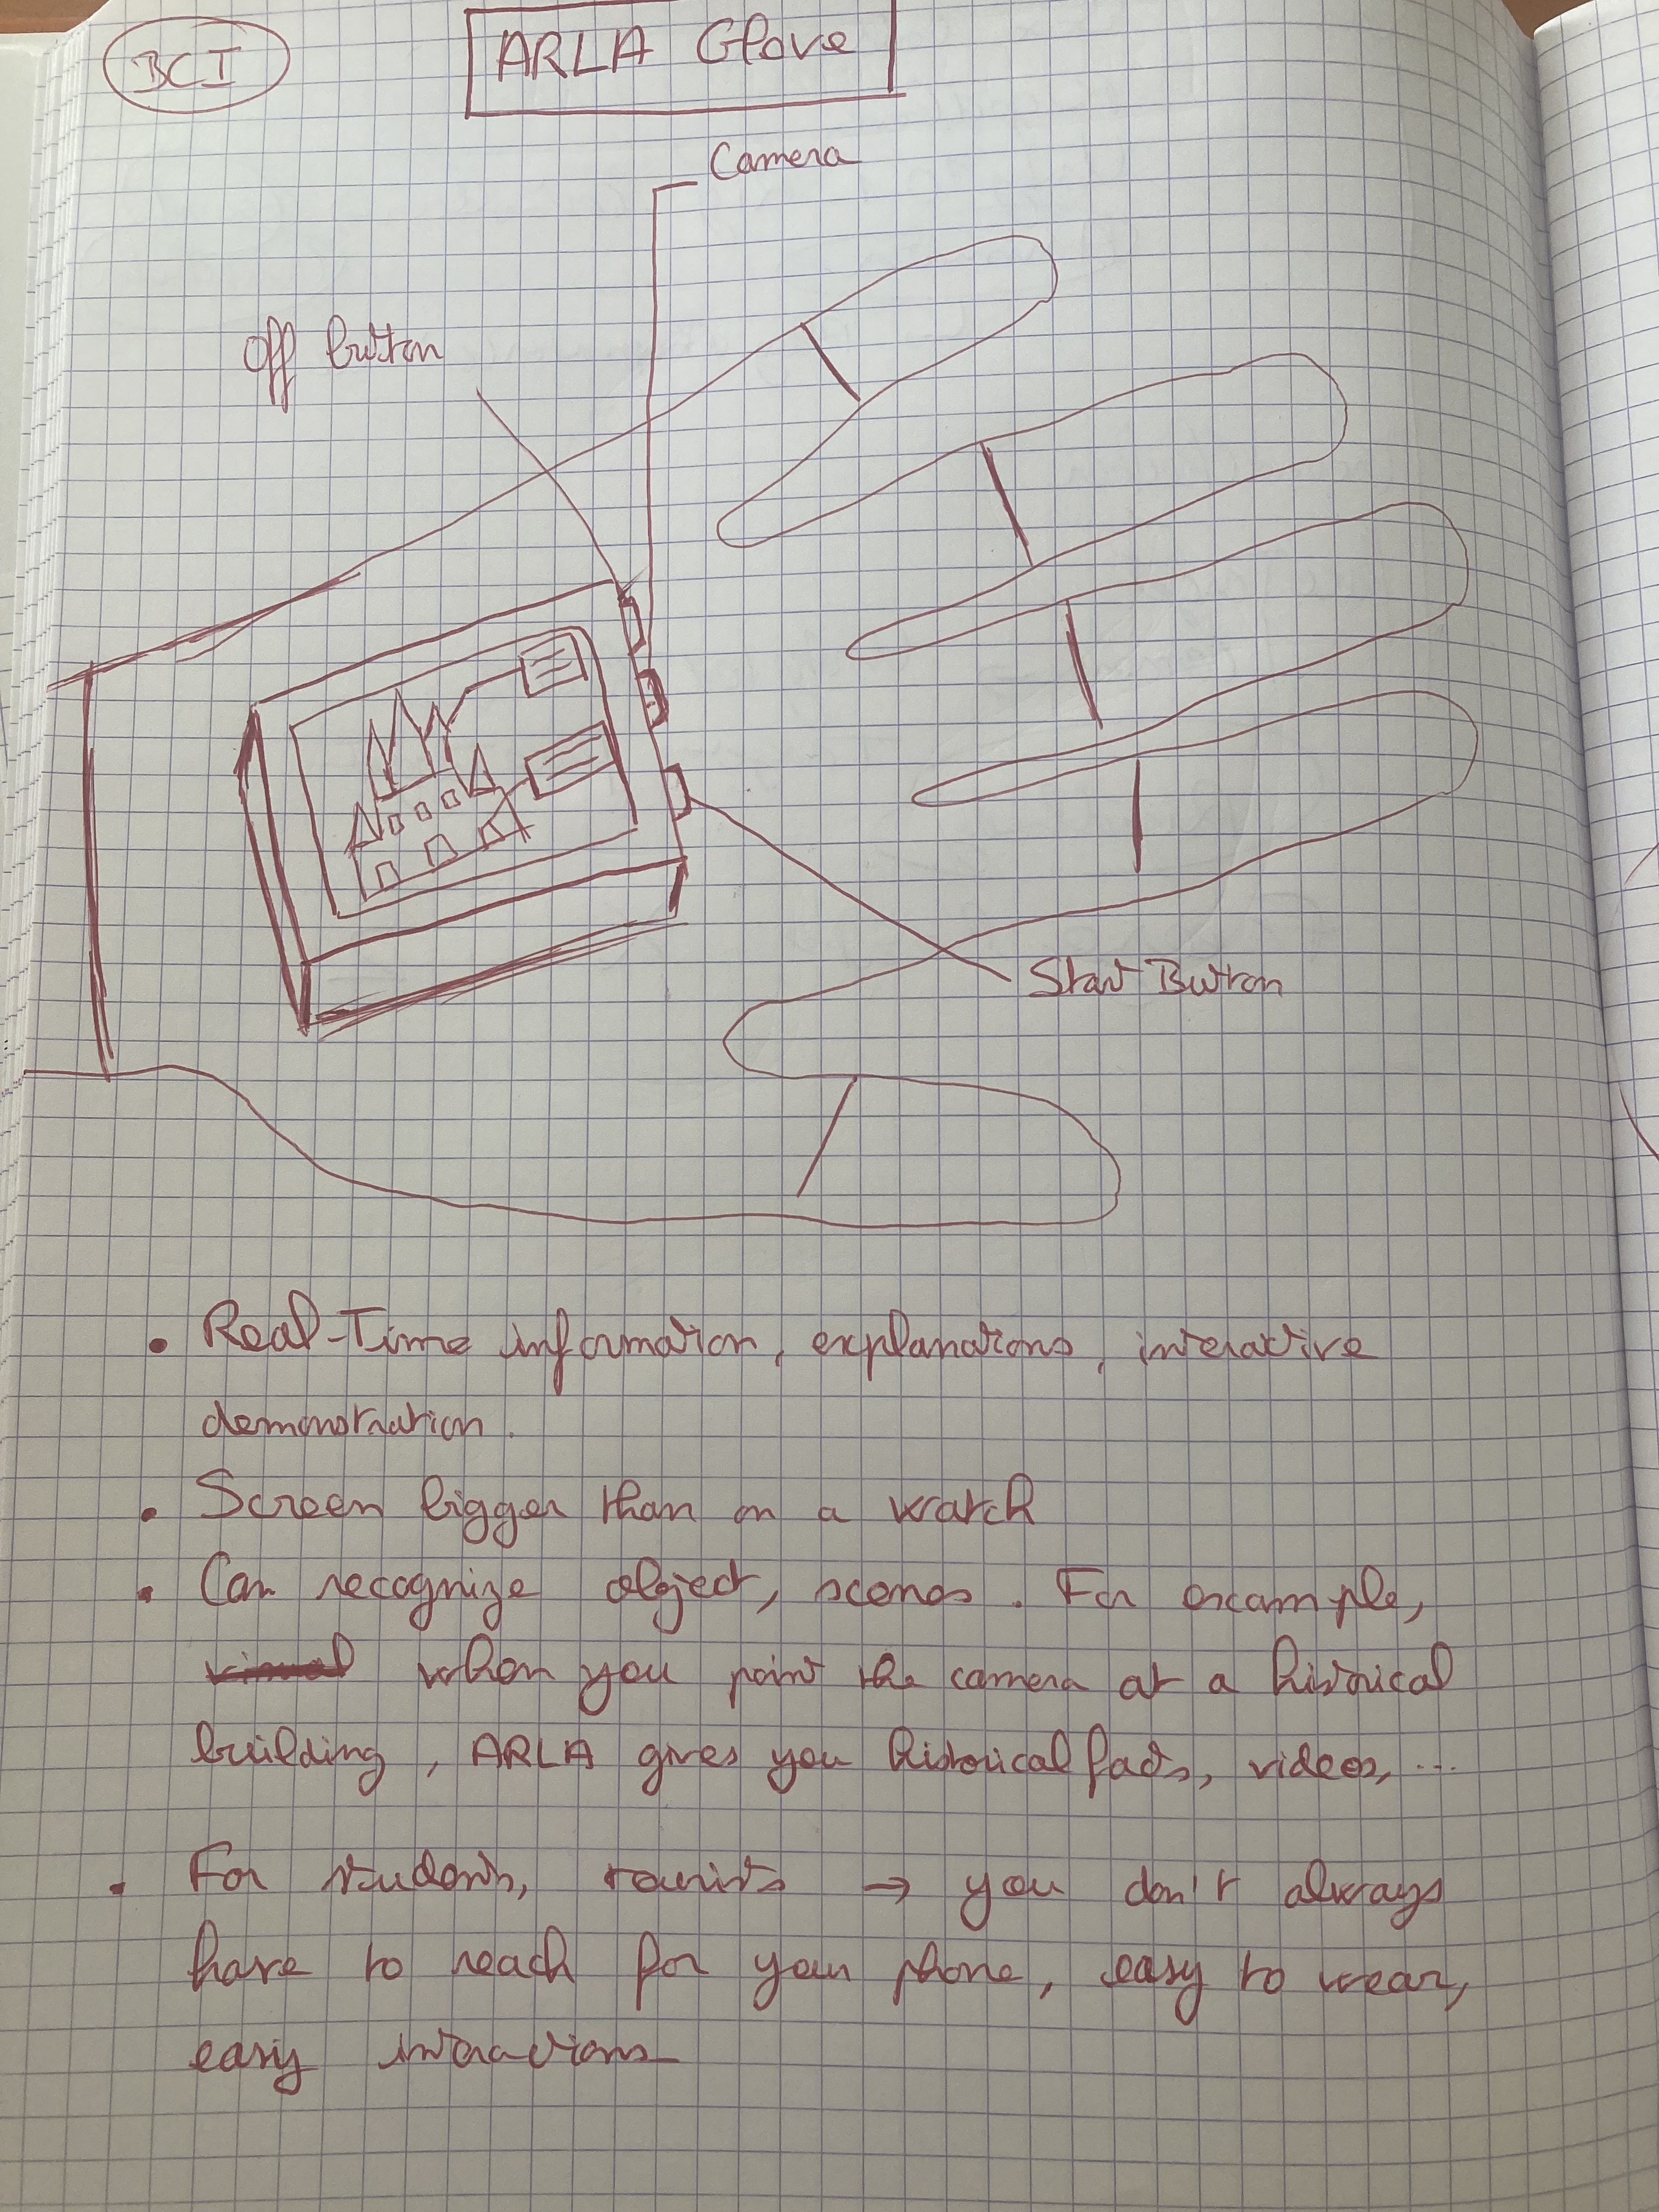 BCI
ARLA Glove
Camera
Off button
Start Button
• Real-Time information, explanations, interactive
demonstration.
• Screen bigger than on a watch
• Can recognize object, scenes. For example,
when you point the camera at a historical
building, ARLA gives you historical facts, videos, ...
• For students, tourists → you don't always
have to reach for your phone, easy to wear,
easy interactions